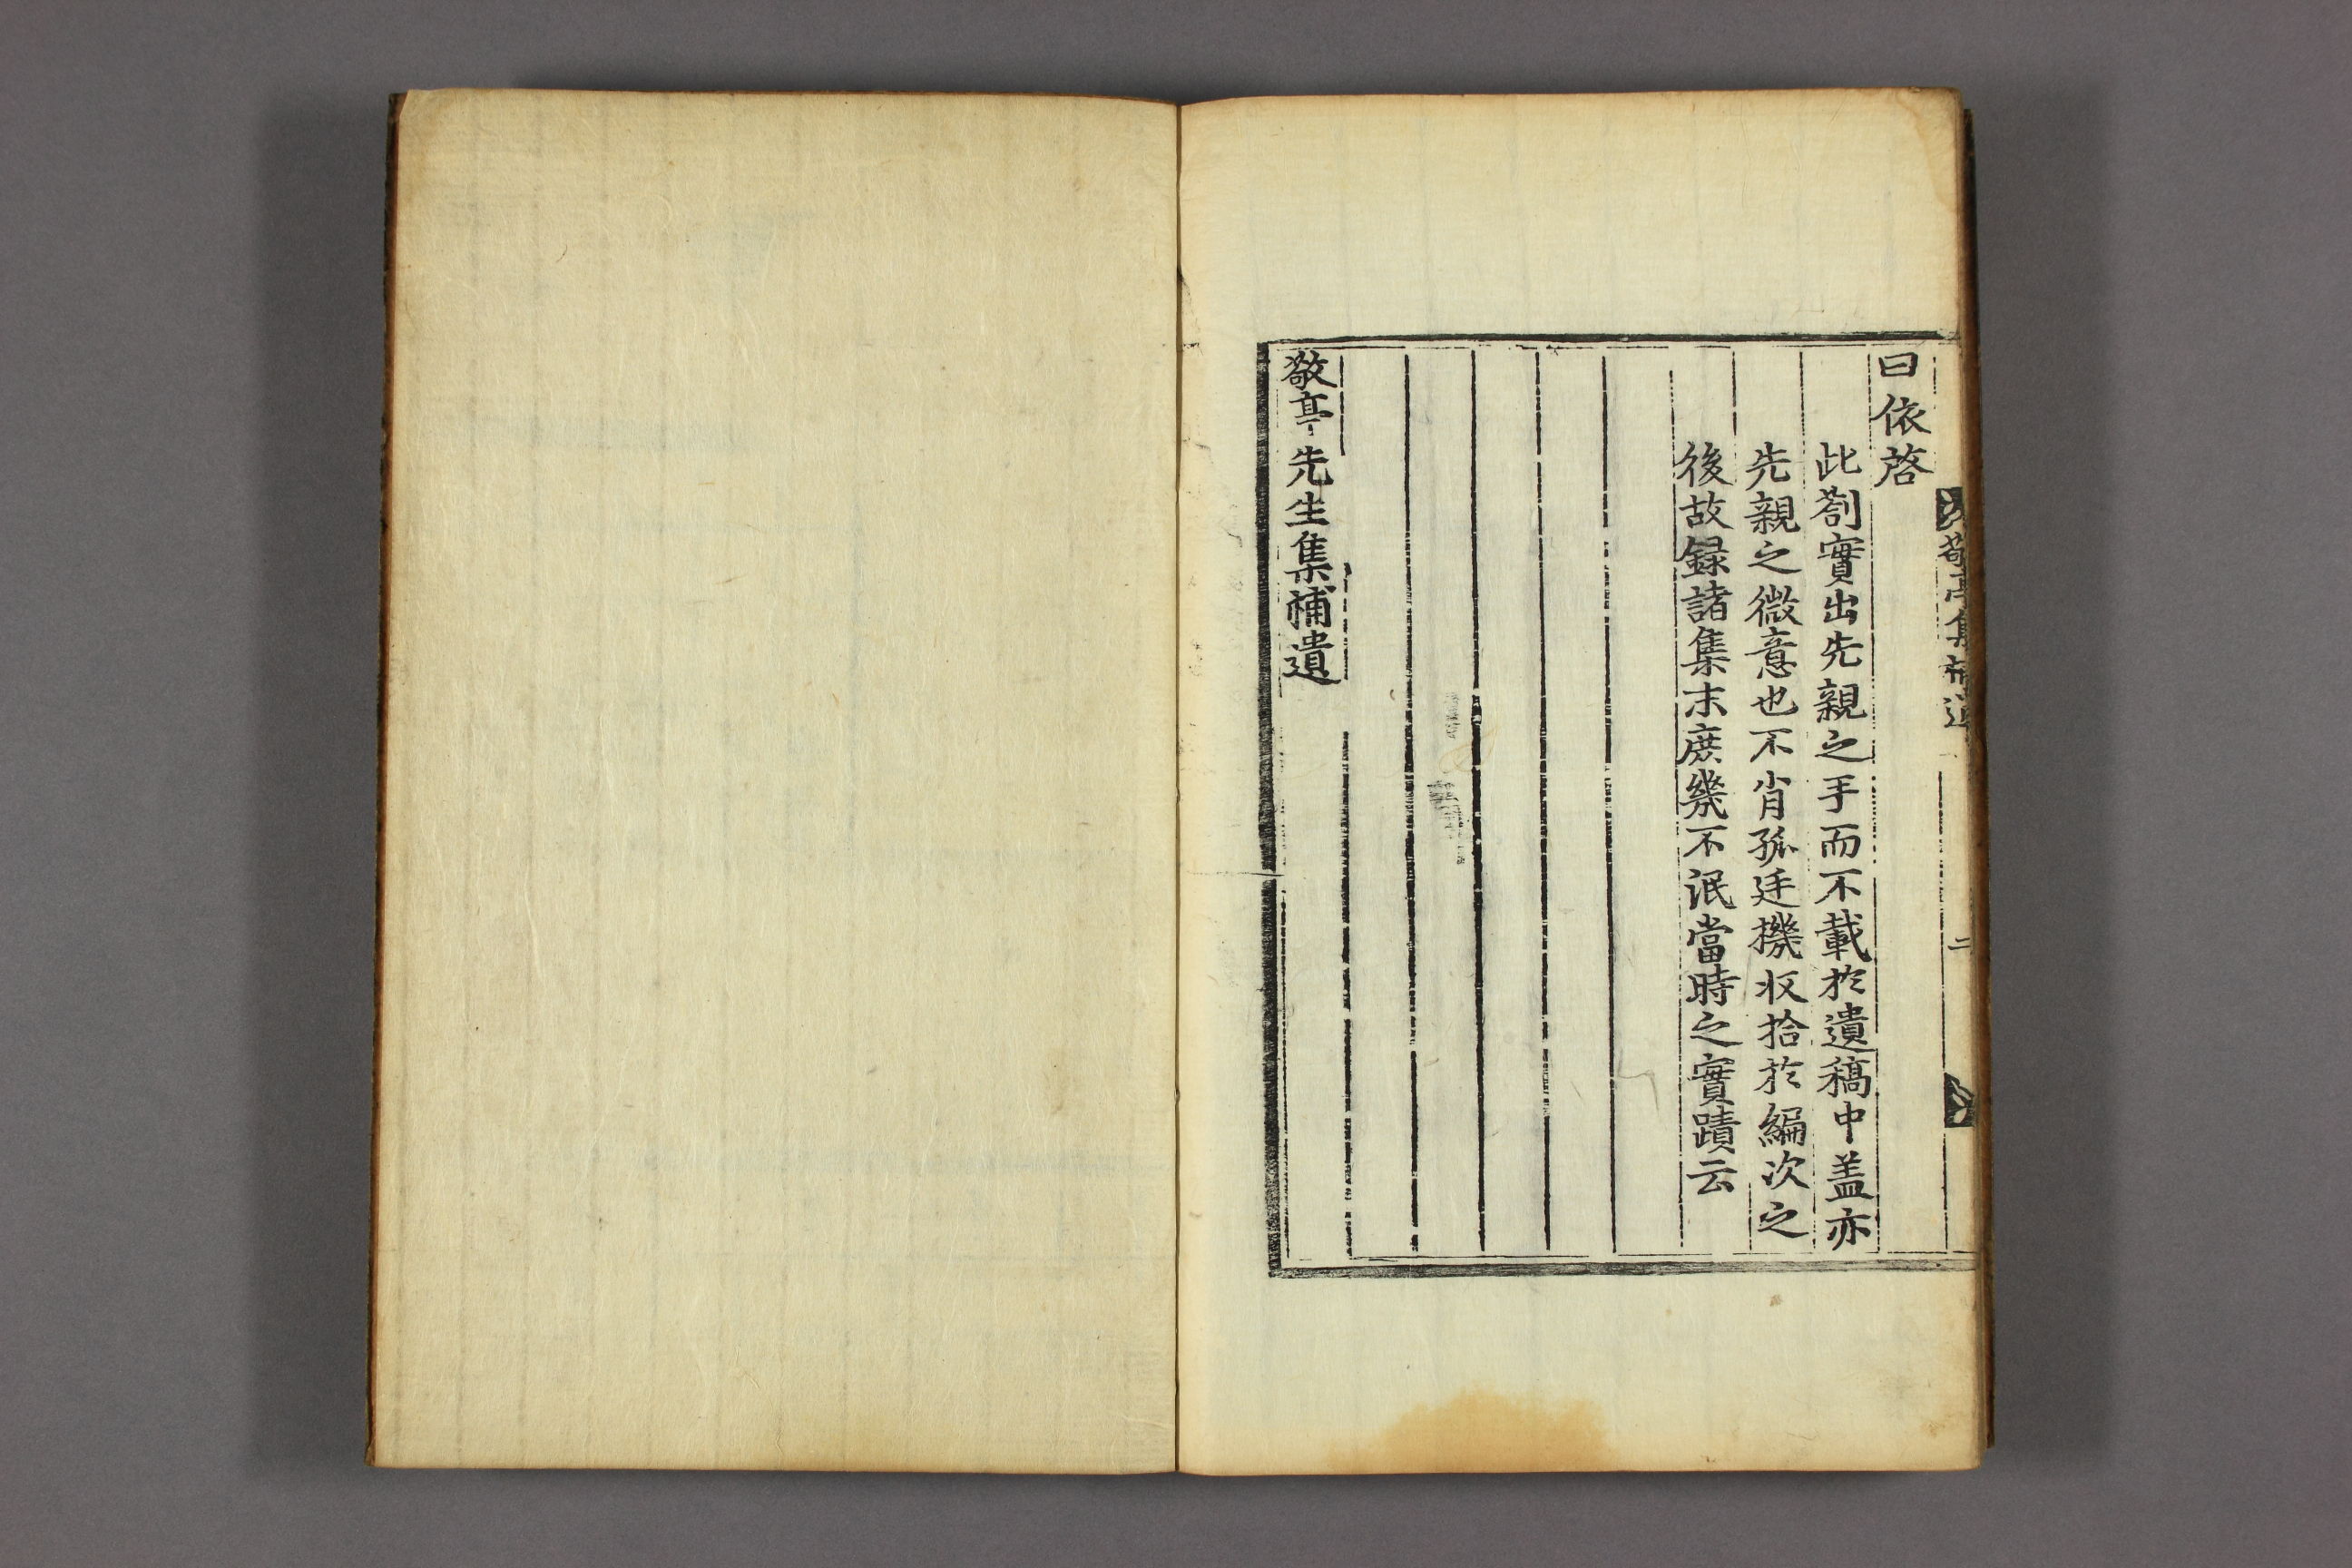 敬亭集補遺 二
曰依啓
此劄實出先親之手而不載於遺稿中盖亦
先親之微意也不肖孤廷機收拾於編次之
後故録諸集末庶幾不泯當時之實蹟云
敬亭先生集補遺